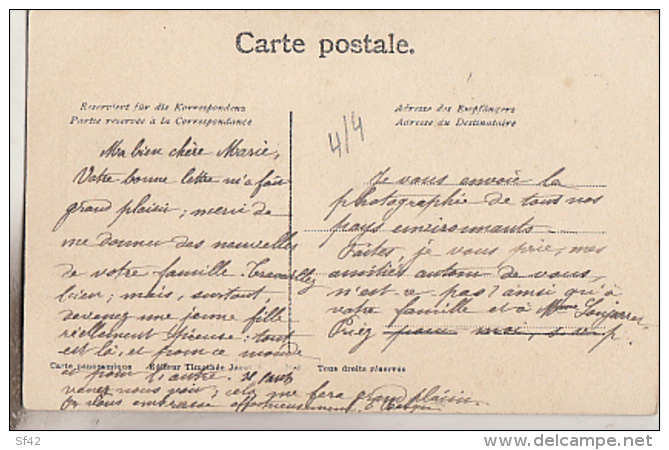 Carte postale.
Reserviert für die Korrespondenz
Partie réservée à la Correspondance
Adresse des Empfängers
Adresse du Destinataire
4/4
Ma bien chère Marie,
Votre bonne lettre m'a fait
grand plaisir; merci de
me donner des nouvelles
de votre famille. Travaillez
bien; mais, surtout,
devenez une jeune fille
réellement pieuse: tout
est là, et pour ce monde
et pour l'autre.
Je vous envoie la
photographie de tous nos
pays environnants.
Faites, je vous prie, mes
amitiés autour de vous,
n'est-ce pas? ainsi qu'à
votre famille et à Mme
Priez pour moi, s.v.p.
Carte panoramique Editeur Timothée
Tous droits réservés
venez nous voir; cela me fera grand plaisir.
Je vous embrasse affectueusement.
Sf42
www.delcampe.net